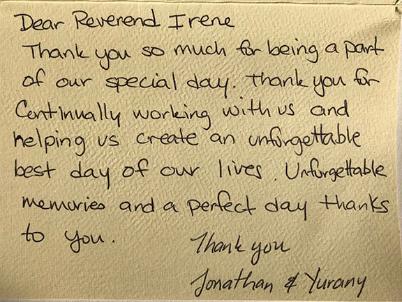 Dear Reverend Irene
Thank you so much for being a part
of our special day. Thank you for
Continually working with us and
helping us create an unforgettable
best day of our lives. Unforgettable
memories and a perfect day thanks
to you.
Thank you
Jonathan & Yurany